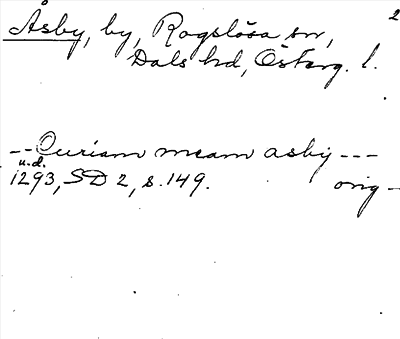 2
Åsby, by, Rogslösa sn,
Dals hd, Österg. l.
-- Curiam meam asby ---
u.d.
1293, SD 2, s. 149. orig -